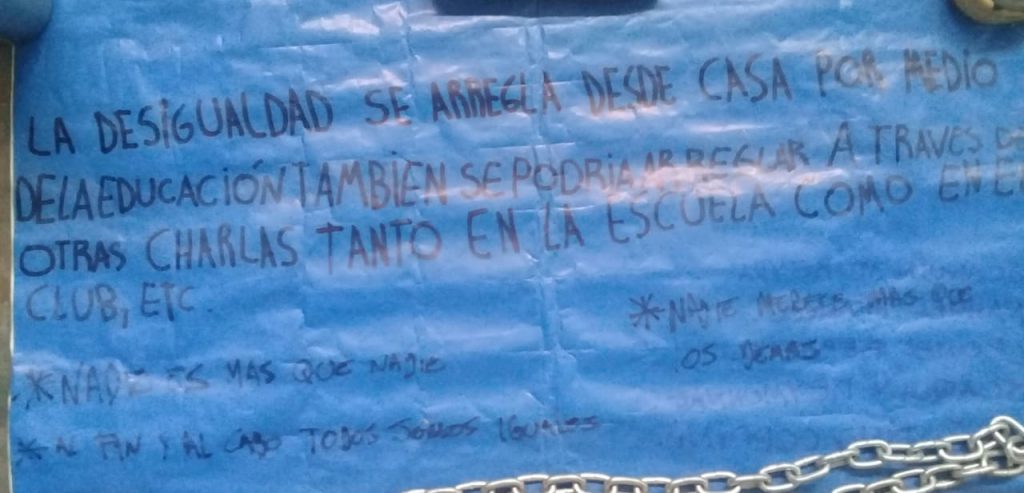 LA DESIGUALDAD SE ARREGLA DESDE CASA POR MEDIO
DE LA EDUCACIÓN TAMBIEN SE PODRIA ARREGLAR A TRAVES DE
OTRAS CHARLAS TANTO EN LA ESCUELA COMO EN EL
CLUB, ETC.
* NADIE MERECE MAS QUE
LOS DEMAS
* NADIE ES MAS QUE NADIE
* AL FIN Y AL CABO TODOS SOMOS IGUALES